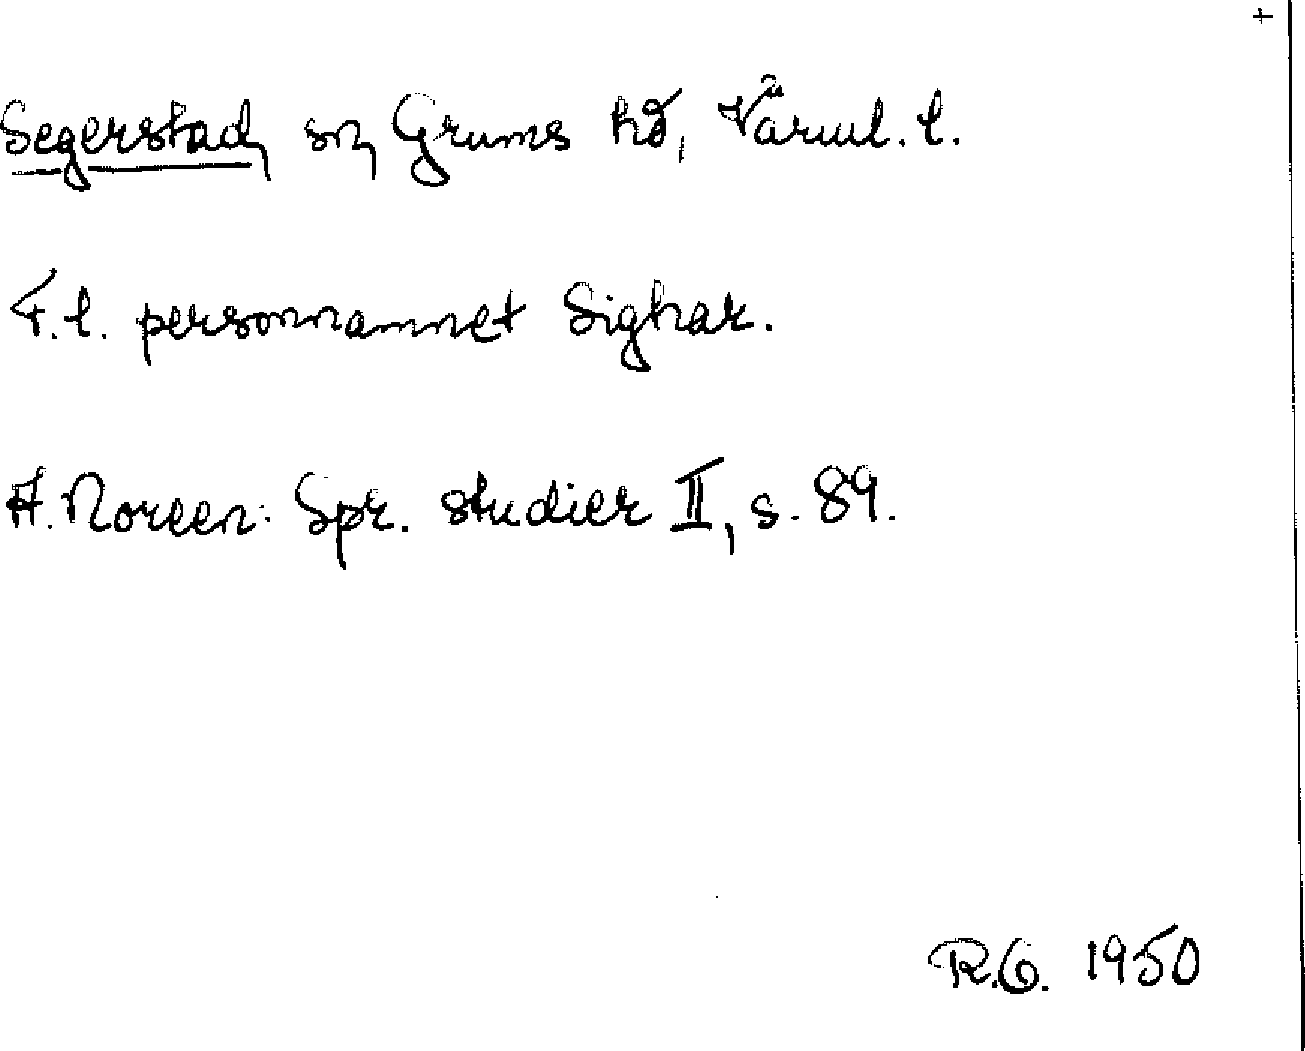 +
Segerstad, sn, Grums hd, Värml. l.
F.l. personnamnet Sighar.
A. Noreen: Spr. studier II, s. 89.
R.G. 1950